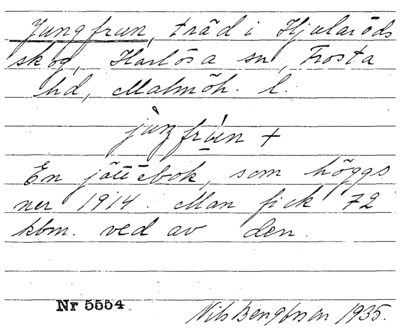 Jungfrun, träd i Hjularöds
skog, Harlösa sn, Frosta
hd, Malmöh. l.
En jättebok, som höggs
ner 1914. Man fick 72
kbm. ved av den.
Nr 5554
Nils Bengtsson 1935.